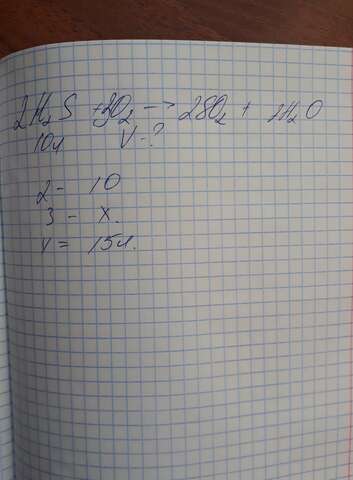 2H₂S + 3O₂ → 2SO₂ + 2H₂O
10л V-?
2 - 10
3 - x.
x = 15л.